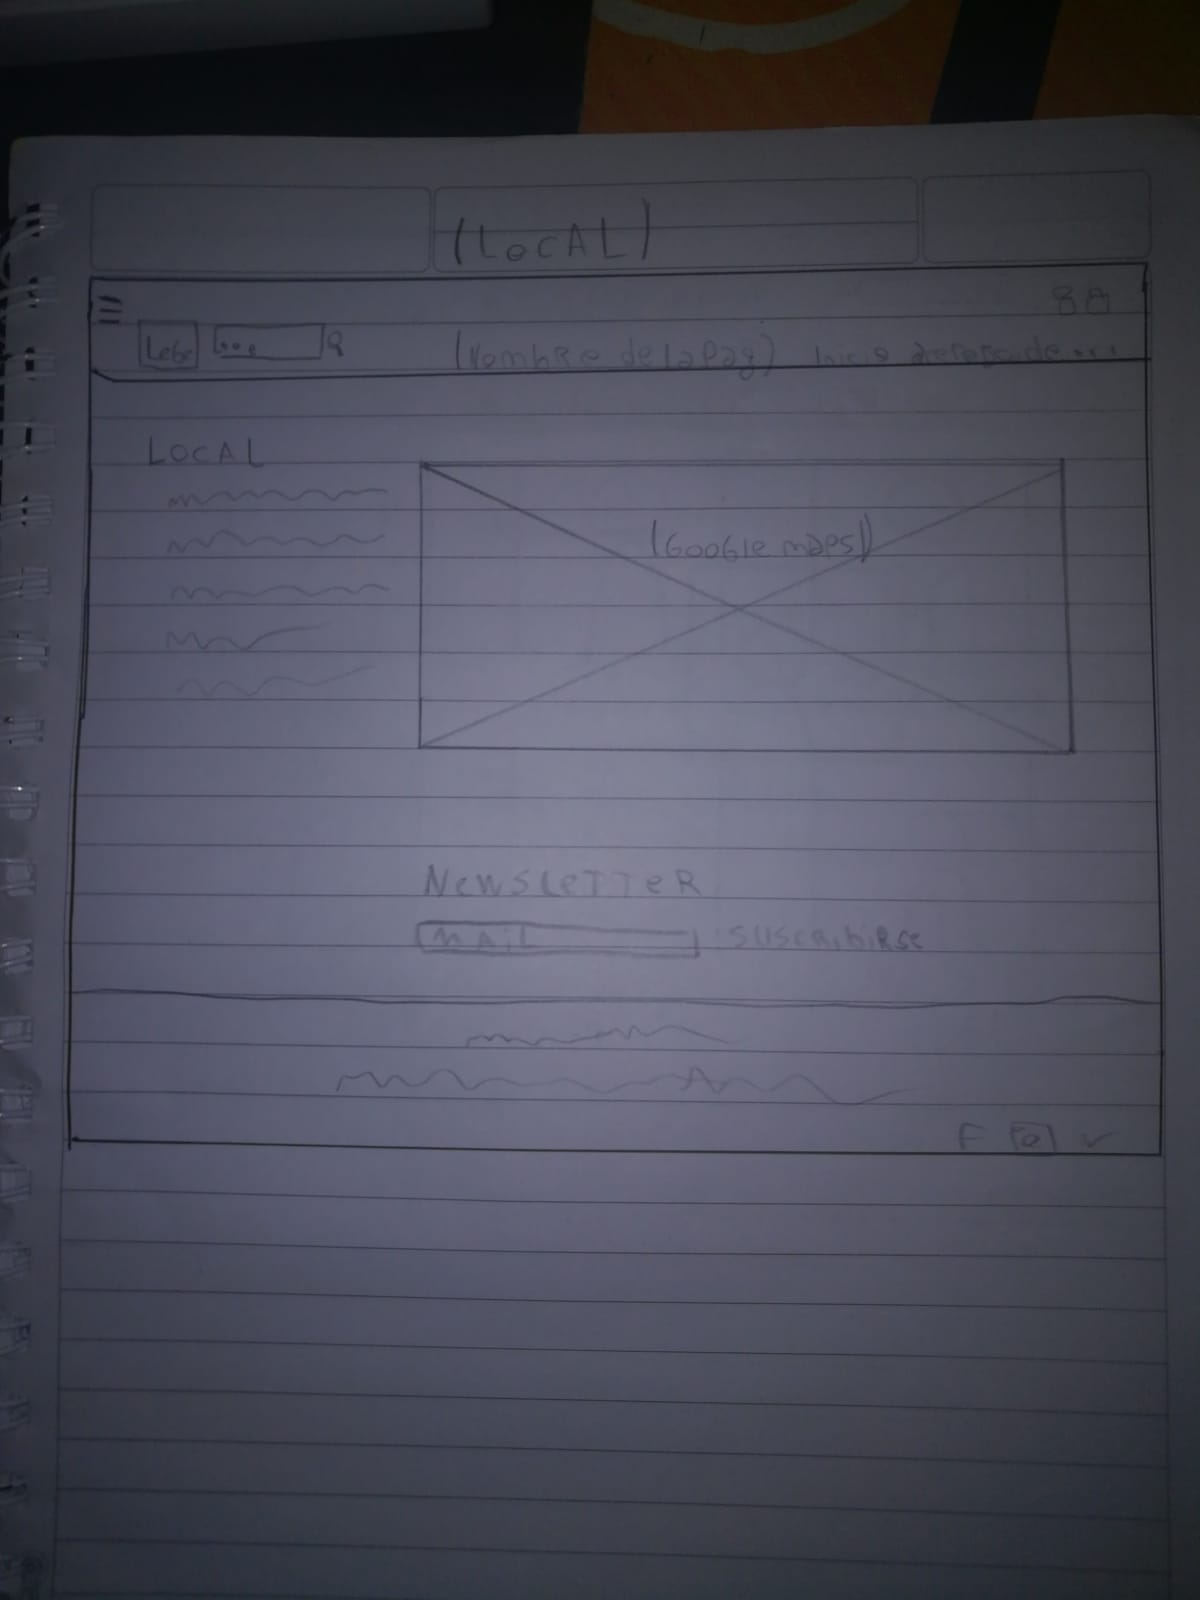 (LOCAL)
...
(Nombre de la Pag) Inicio
LOCAL
(Google maps)
NewsLeTTeR
MAiL suscribirse
F